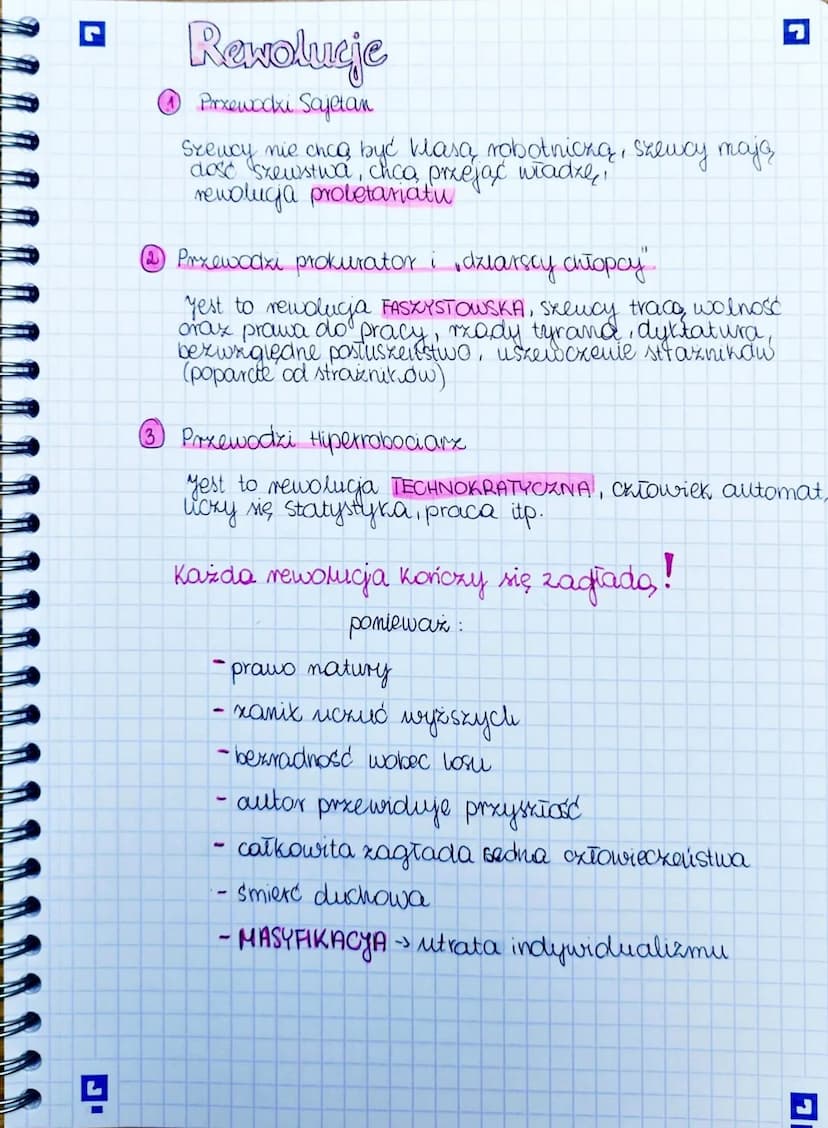 Rewolucje
1 Przewodzi Sajetan
Szewcy nie chcą być klasą robotniczą, szewcy mają
dość szewstwa, chcą przejąć władzę,
rewolucja proletariatu
2 Przewodzi prokurator i „dziarscy chłopcy"
Jest to rewolucja FASZYSTOWSKA, szewcy tracą wolność
oraz prawa do pracy, rządy tyrana, dyktatura,
bezwzględne posłuszeństwo, uszewczenie strażników
(poparcie od strażników)
3 Przewodzi Hiperrobociarz
Jest to rewolucja TECHNOKRATYCZNA, człowiek automat,
liczy się statystyka, praca itp.
Każda rewolucja kończy się zagładą!
ponieważ:
- prawo natury
- zanik uczuć wyższych
- bezradność wobec losu
- autor przewiduje przyszłość
- całkowita zagłada sedna człowieczeństwa
- śmierć duchowa
- MASYFIKACJA → utrata indywidualizmu